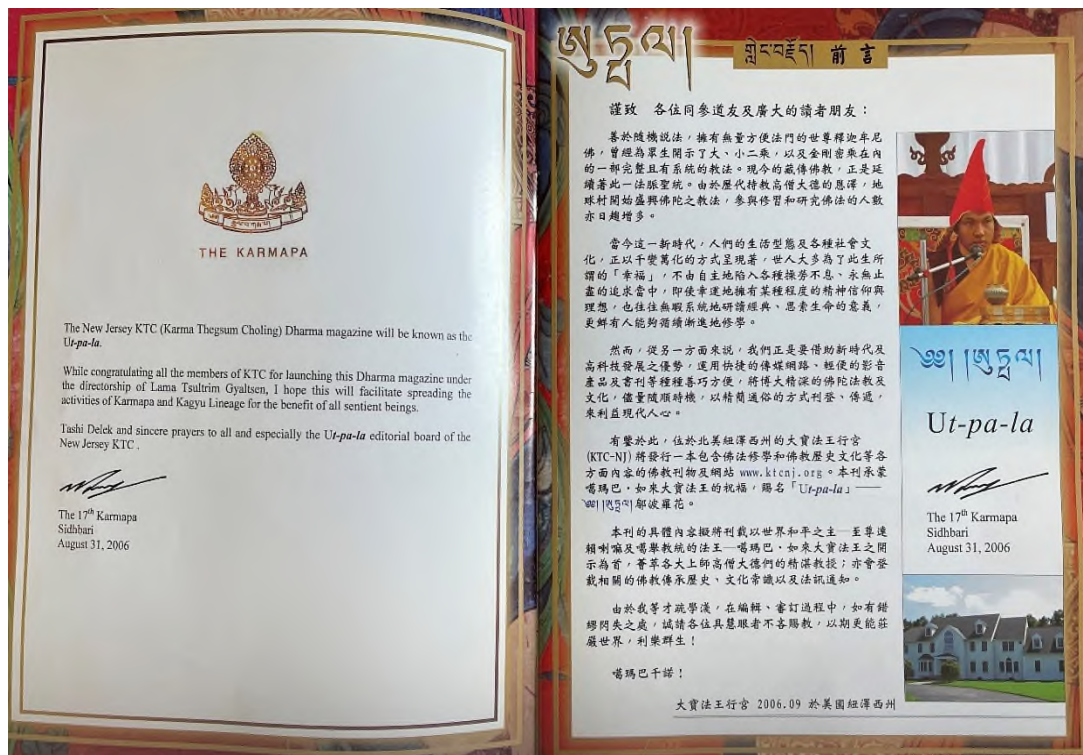 THE KARMAPA
The New Jersey KTC (Karma Thegsum Choling) Dharma magazine will be known as the
Ut-pa-la.
While congratulating all the members of KTC for launching this Dharma magazine under
the directorship of Lama Tsultrim Gyaltsen, I hope this will facilitate spreading the
activities of Karmapa and Kagyu Lineage for the benefit of all sentient beings.
Tashi Delek and sincere prayers to all and especially the Ut-pa-la editorial board of the
New Jersey KTC .
The 17th Karmapa
Sidhbari
August 31, 2006
ཨུཏྤལ།
གླེང་བརྗོད། 前言
謹致 各位同參道友及廣大的讀者朋友：
善於隨機説法，擁有無量方便法門的世尊釋迦牟尼
佛，曾經為眾生開示了大、小二乘，以及金剛密乘在內
的一部完整且有系統的教法。現今的藏傳佛教，正是延
續著此一法脈聖統。由於歷代持教高僧大德的恩澤，地
球村開始盛興佛陀之教法，參與修習和研究佛法的人數
亦日趨增多。
當今這一新時代，人們的生活型態及各種社會文
化，正以千變萬化的方式呈現著，世人大多為了此生所
謂的「幸福」，不由自主地陷入各種操勞不息、永無止
盡的追求當中，即使幸運地擁有某種程度的精神信仰與
理想，也往往無暇系統地研讀經典、思索生命的意義，
更鮮有人能夠循續漸進地修學。
然而，從另一方面來説，我們正是要借助新時代及
高科技發展之優勢，運用快捷的傳媒網路、輕便的影音
產品及書刊等種種善巧方便，將博大精深的佛陀法教及
文化，儘量隨順時機，以精簡通俗的方式刊登、傳遞，
來利益現代人心。
有鑒於此，位於北美紐澤西州的大寶法王行宮
(KTC-NJ)將發行一本包含佛法修學和佛教歷史文化等各
方面內容的佛教刊物及網站 www.ktcnj.org。本刊承蒙
噶瑪巴．如來大寶法王的祝福，賜名「Ut-pa-la」——
༄༅། །ཨུཏྤལ། 鄔波羅花。
本刊的具體內容擬將刊載以世界和平之主─至尊達
賴喇嘛及噶舉教統的法王─噶瑪巴．如來大寶法王之開
示為首，薈萃各大上師高僧大德們的精湛教授；亦會登
載相關的佛教傳承歷史、文化常識以及法訊通知。
由於我等才疏學淺，在編輯、審訂過程中，如有錯
繆閃失之處，誠請各位具慧眼者不吝賜教，以期更能莊
嚴世界，利樂群生！
噶瑪巴千諾！
大寶法王行宮 2006.09 於美國紐澤西州
༄༅། །ཨུཏྤལ།
Ut-pa-la
The 17th Karmapa
Sidhbari
August 31, 2006